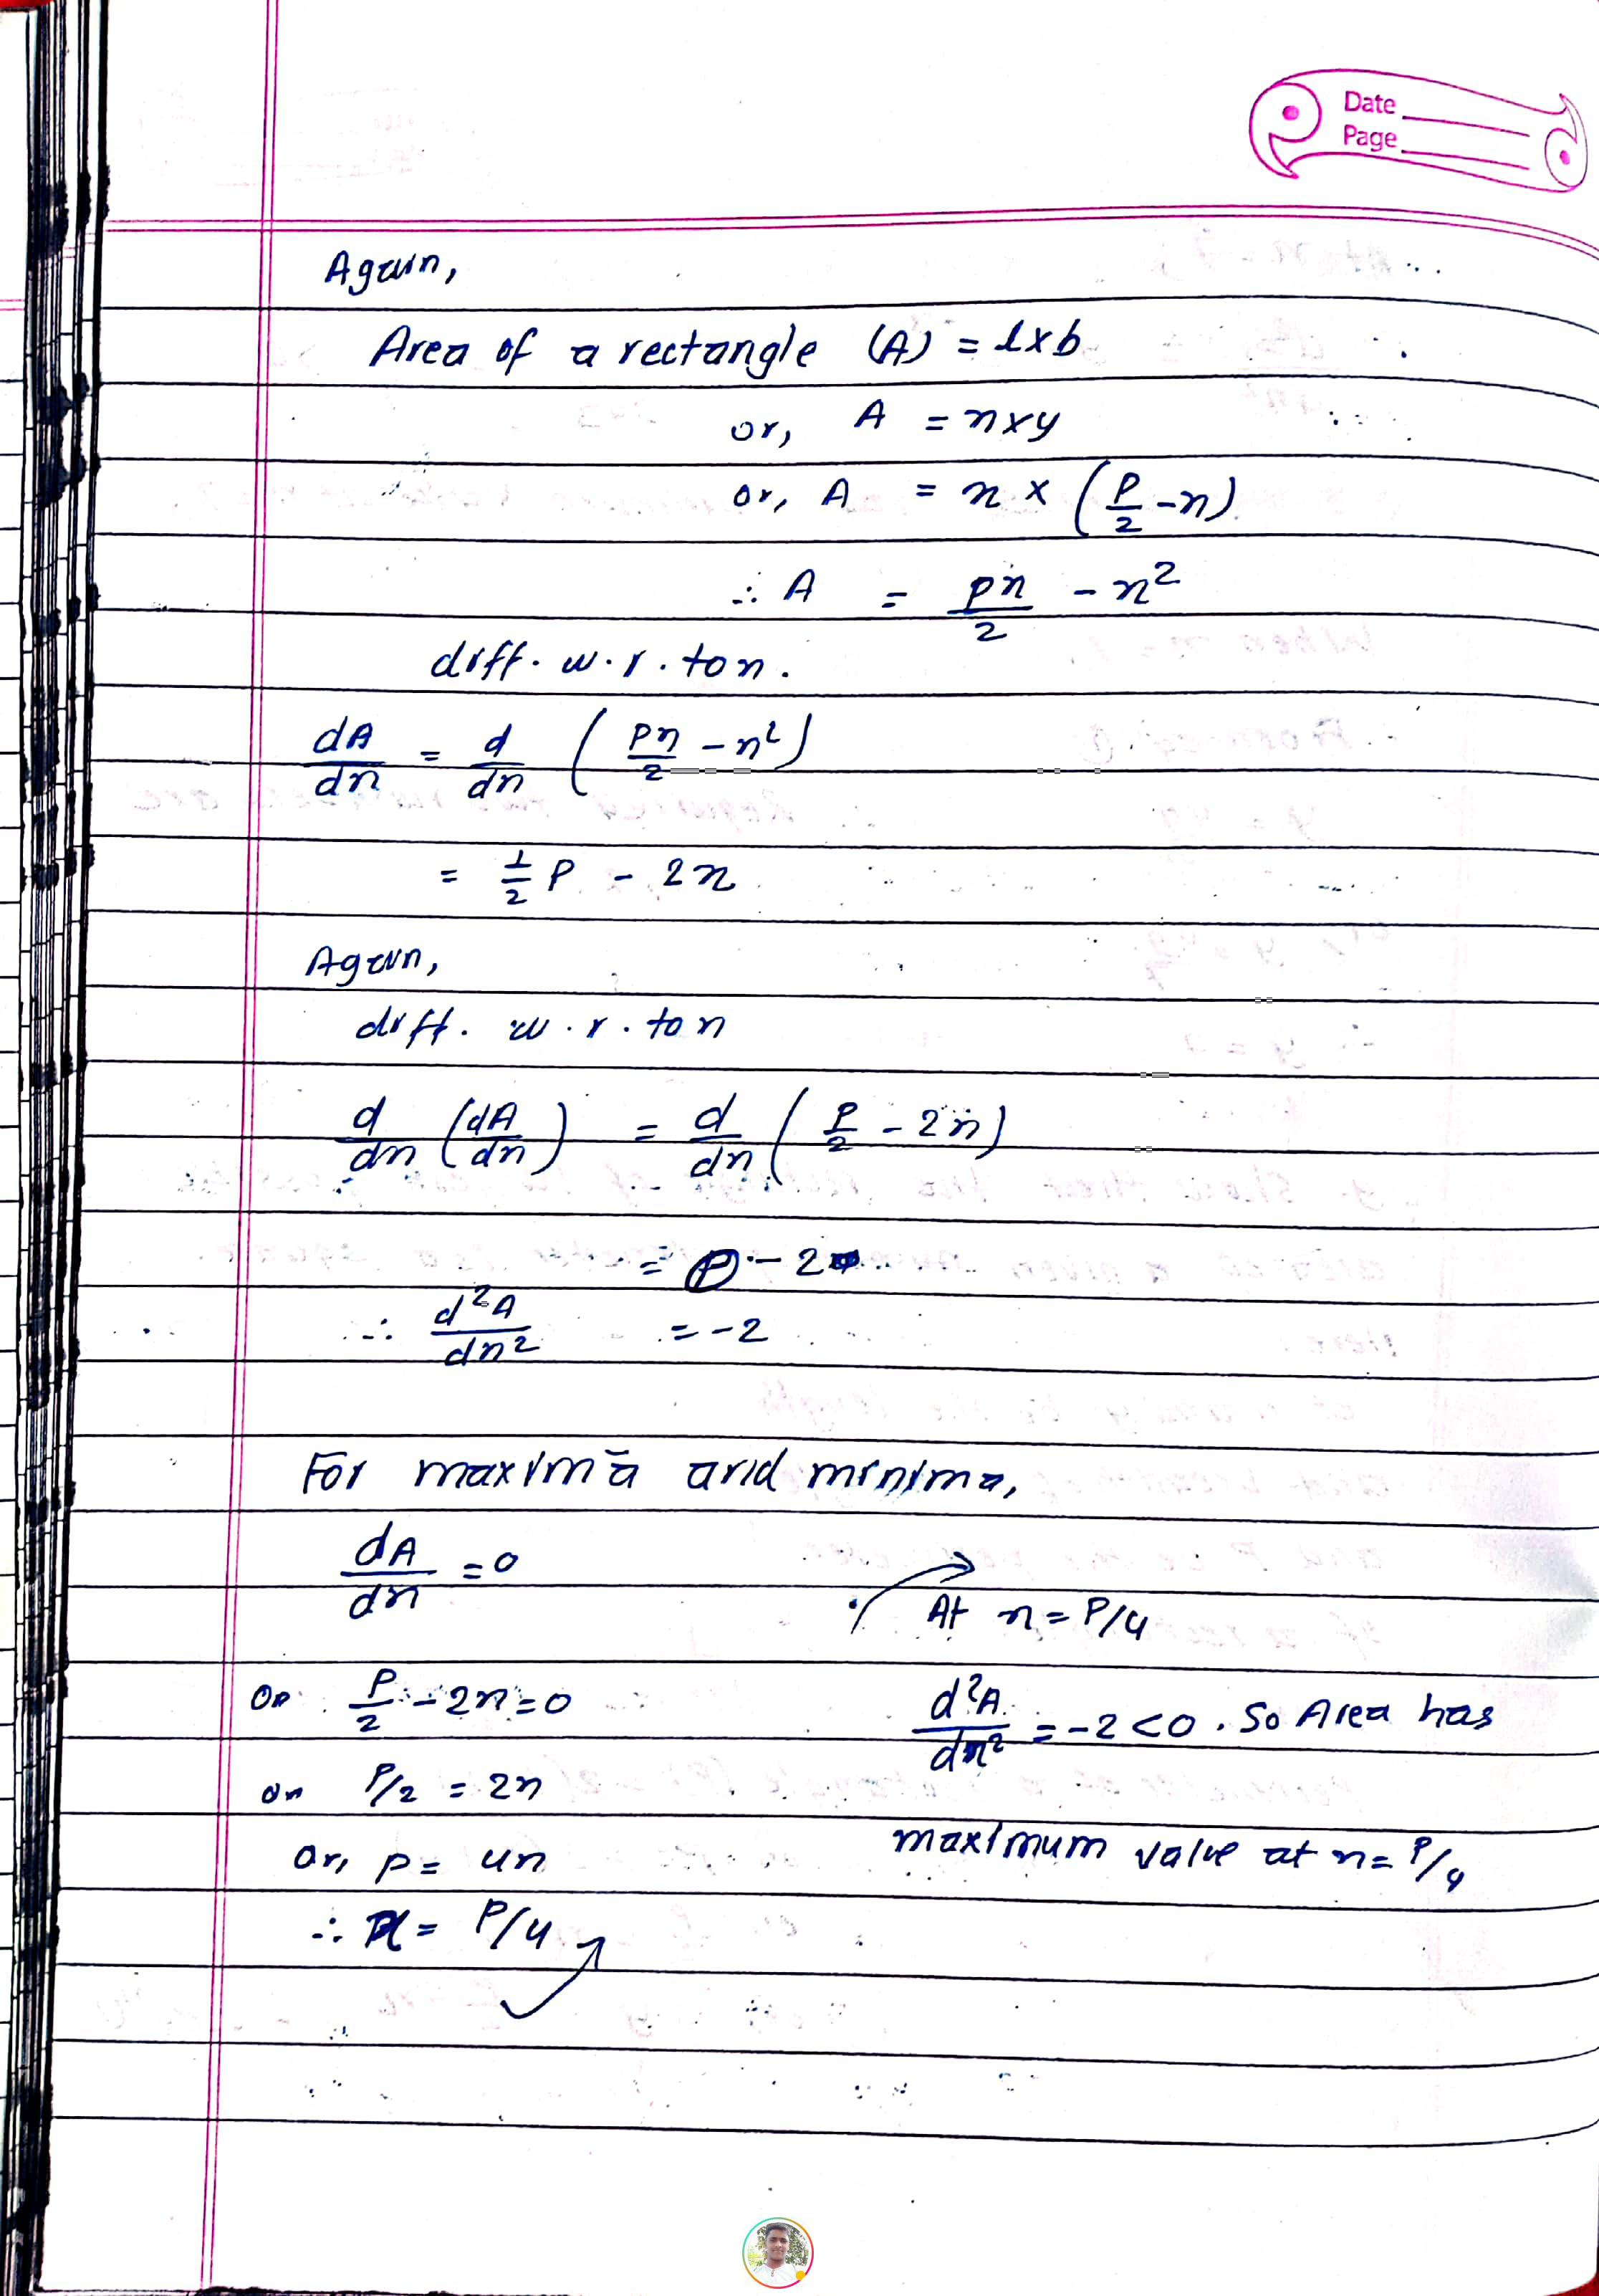 Date
Page
Again,
Area of a rectangle (A) = l×b
or, A = x×y
or, A = x × (P/2 - x)
∴ A = Px/2 - x²
diff. w.r. to x.
dA/dx = d/dx (Px/2 - x²)
= 1/2 P - 2x
Again,
diff. w.r. to x
d/dx (dA/dx) = d/dx (P/2 - 2x)
= - 2
∴ d²A/dx² = -2
For maxima and minima,
dA/dx = 0
or P/2 - 2x = 0
or P/2 = 2x
or, P = 4x
∴ x = P/4
At x = P/4
d²A/dx² = -2 < 0. So Area has
maximum value at x = P/4